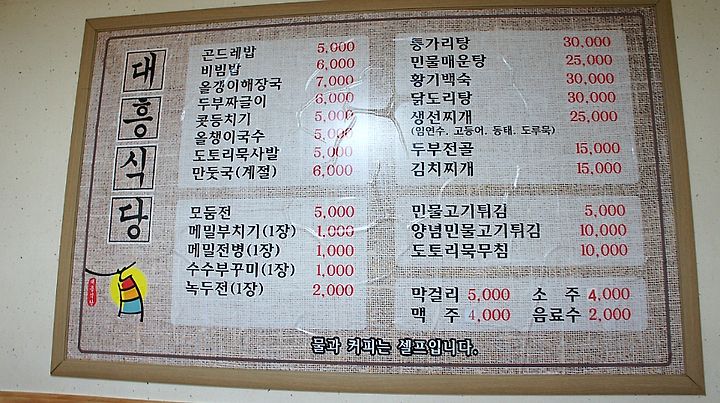 대흥식당
곤드레밥 5,000
비빔밥 6,000
올갱이해장국 7,000
두부짜글이 6,000
콧등치기 5,000
올챙이국수 5,000
도토리묵사발 5,000
만둣국(계절) 6,000
모둠전 5,000
메밀부치기(1장) 1,000
메밀전병(1장) 1,000
수수부꾸미(1장) 1,000
녹두전(1장) 2,000
통가리탕 30,000
민물매운탕 25,000
황기백숙 30,000
닭도리탕 30,000
생선찌개 25,000
(임연수, 고등어, 동태, 도루묵)
두부전골 15,000
김치찌개 15,000
민물고기튀김 5,000
양념민물고기튀김 10,000
도토리묵무침 10,000
막걸리 5,000 소 주 4,000
맥 주 4,000 음료수 2,000
물과 커피는 셀프입니다.